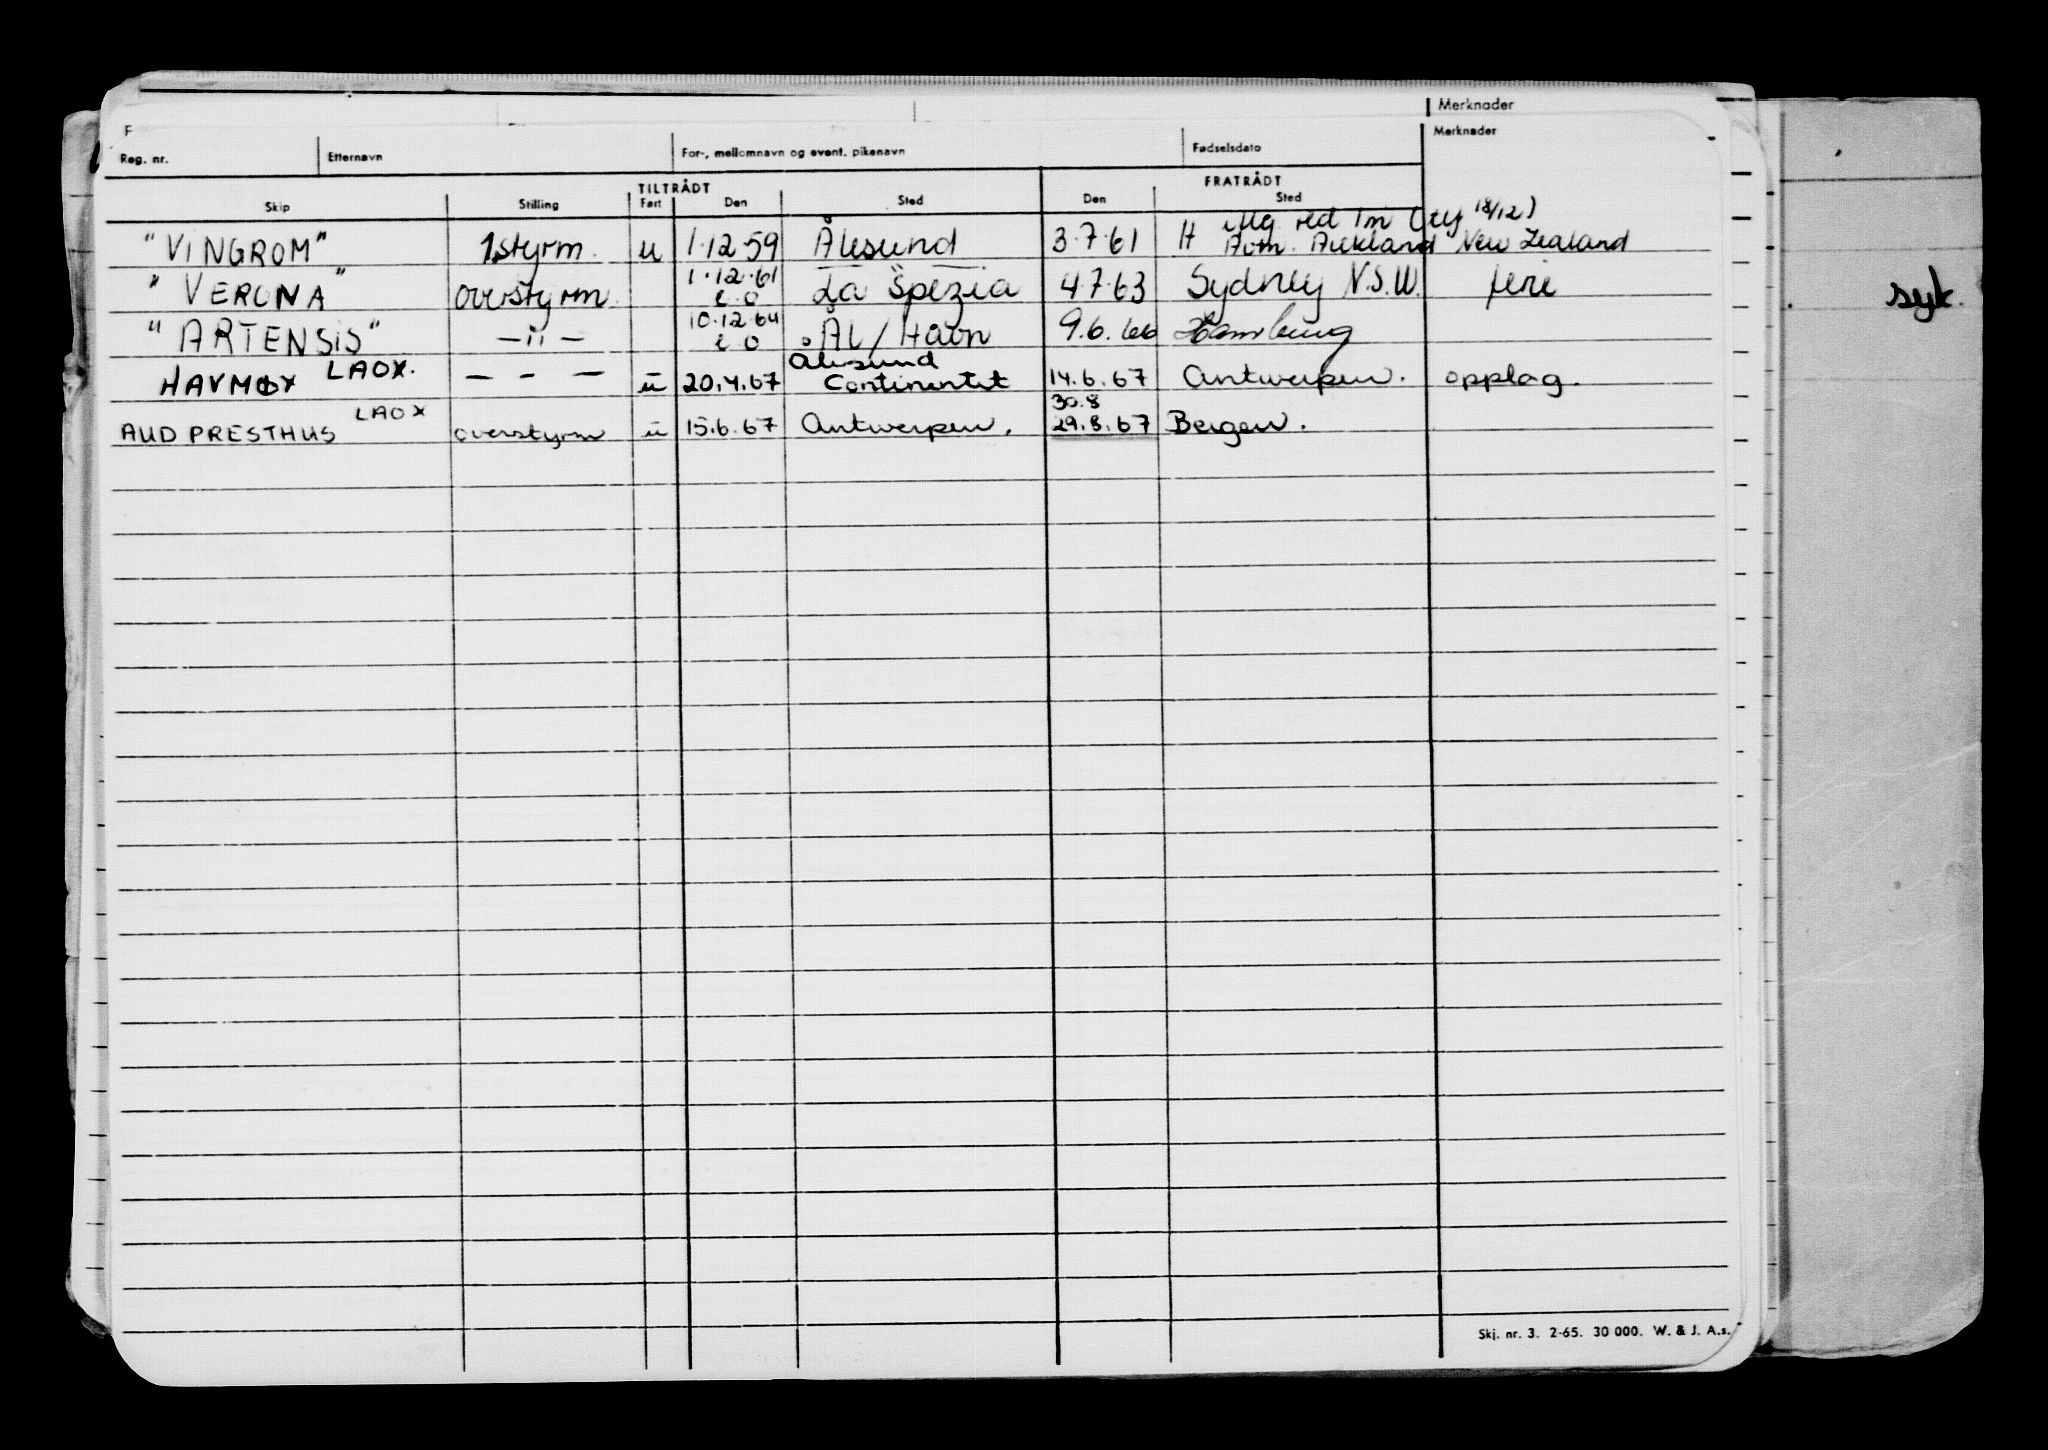 Merknader
F
Merknader
Reg. nr. Etternavn For-, mellomnavn og event. pikenavn Fødselsdato
TILTRÅDT FRATRÅDT
Skip Stilling Fart Den Sted Den Sted
18/12)
"VINGROM" 1.styrm. u 1.12.59 Ålesund 3.7.61 Auckland New Zealand
1.12.61
"VERONA" overstyrm. La Spezia 4.7.63 Sydney N.S.W. ferie
syk.
10.12.64
"ARTENSIS" —"— ÅL/Havn 9.6.66 Hamburg
Ålesund
HAVMØY LAOX. — - — u 20.4.67 Continentet 14.6.67 Antwerpen. opplag.
LAOX 30.8
AUD PRESTHUS overstyrm u 15.6.67 Antwerpen. 29.8.67 Bergen.
Skj. nr. 3. 2-65. 30 000. W. & J. A.s.